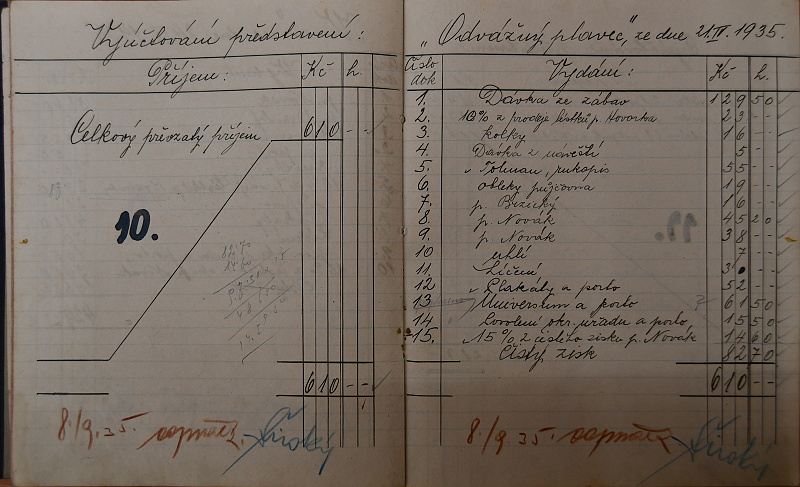 Vyúčtování představení:
Příjem: Kč h.
Celkový převzatý příjem 610 - -
10.
610 - -
8./9. 35.
"Odvážný plavec", ze dne 21.IV. 1935.
Číslo dok Vydání: Kč h.
1. Dávka ze zábav 129 50
2. 10% z prodeje lístků p. Hovorka 23 - -
3. kolky 16 - -
4. Dávka z návěští 5 - -
5. " Tolman, rukopis 55 - -
6. obleky půjčovna 19 - -
7. p. Brzický 16 - -
8. p. Novák 45 20
9. p. Novák 38 - -
10 uhlí 7 - -
11. Líčení 3 - -
12 " Plakáty a porto 52 - -
13 Universum a porto 61 50
14 Povolení okr. úřadu a porto 15 50
15. " 15% z čistého zisku p. Novák 14 60
Čistý zisk 82 70
610 - -
8./9. 35.